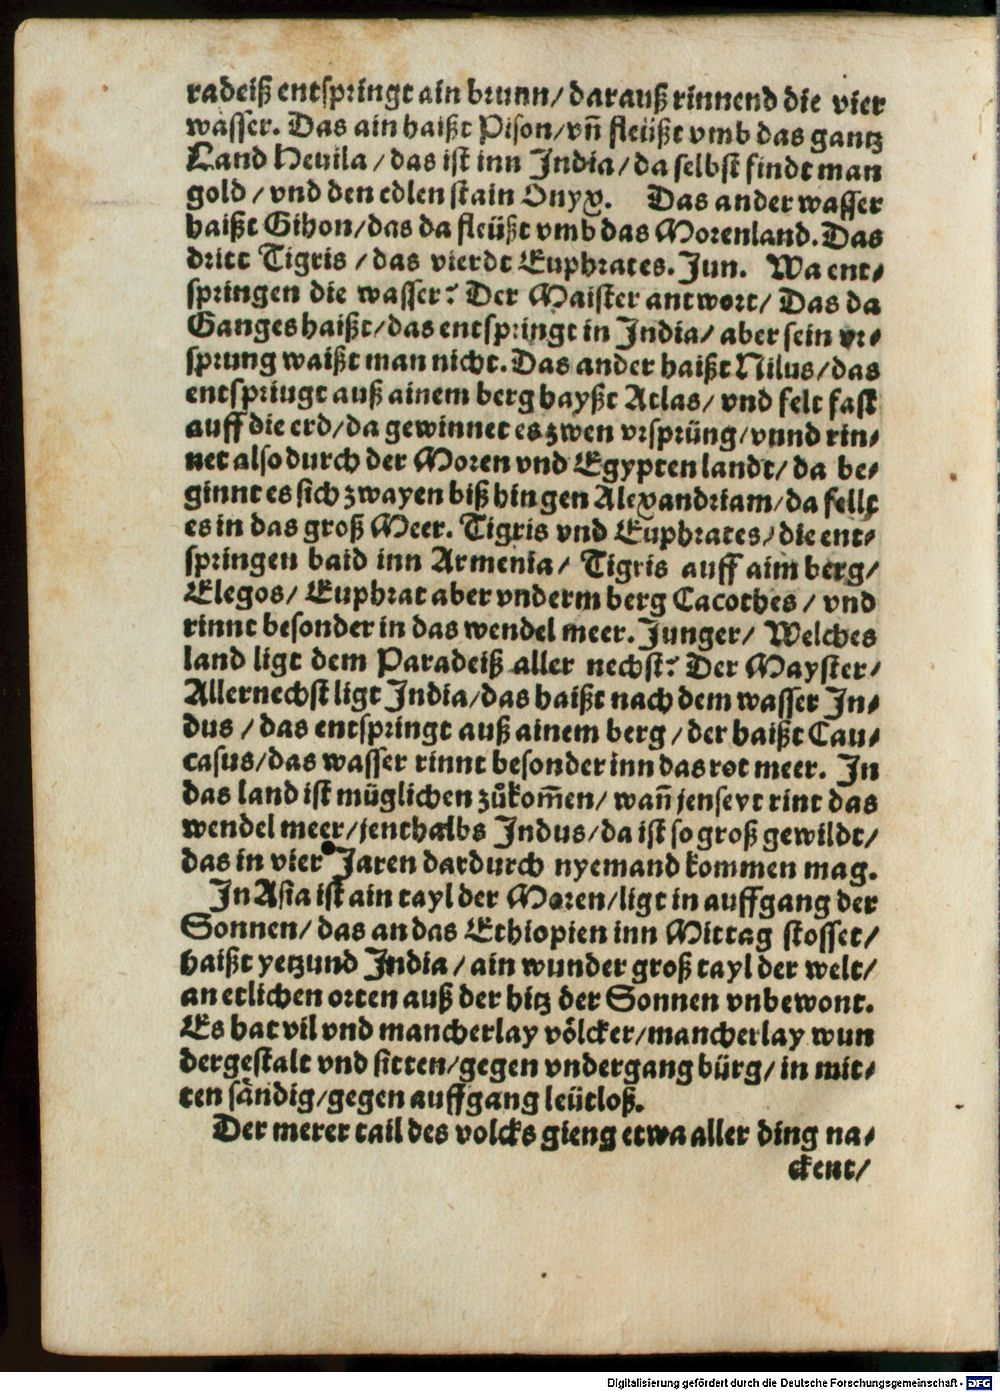 radeiß entspringt ain brunn/ darauß rinnend die vier
wasser. Das ain haißt Pison/ vñ fleüßt vmb das gantz
Land Heuila / das ist inn India / da selbst findt man
gold / vnd den edlen stain Onyx. Das ander wasser
haißt Gihon/ das da fleüßt vmb das Morenland. Das
dritt Tigris / das vierdt Euphrates. Jun. Wa ent⸗
springen die wasser? Der Maister antwort/ Das da
Ganges haißt/ das entspringt in India/ aber sein vr⸗
sprung waißt man nicht. Das ander haißt Nilus/ das
entspringt auß ainem berg hayßt Atlas/ vnd felt fast
auff die erd/ da gewinnet es zwen vrsprüng/ vnnd rin⸗
net also durch der Moren vnd Egypten landt/ da be⸗
ginnt es sich zwayen biß hin gen Alexandriam/ da fellt
es in das groß Meer. Tigris vnd Euphrates/ die ent⸗
springen baid inn Armenia/ Tigris auff aim berg/
Elegos/ Euphrat aber vnderm berg Cacothes / vnd
rinnt besonder in das wendel meer. Junger/ Welches
land ligt dem Paradeiß aller nechst? Der Mayster/
Allernechst ligt India/ das haißt nach dem wasser In⸗
dus / das entspringt auß ainem berg / der haißt Cau⸗
casus/ das wasser rinnt besonder inn das rot meer. In
das land ist müglichen zůkom̃en/ wañ jenseyt rint das
wendel meer/ jenthalbs Indus/ da ist so groß gewildt/
das in vier Jaren dardurch nyemand kommen mag.
In Asia ist ain tayl der Moren/ ligt in auffgang der
Sonnen/ das an das Ethiopien inn Mittag stosset/
haißt yetzund India / ain wunder groß tayl der welt/
an etlichen orten auß der hitz der Sonnen vnbewont.
Es hat vil vnd mancherlay völcker/ mancherlay wun
dergestalt vnd sitten/ gegen vndergang bürg/ in mit⸗
ten sändig/ gegen auffgang leütloß.
Der merer tail des volcks gieng etwa aller ding na⸗
ckent/
Digitalisierung gefördert durch die Deutsche Forschungsgemeinschaft - DFG